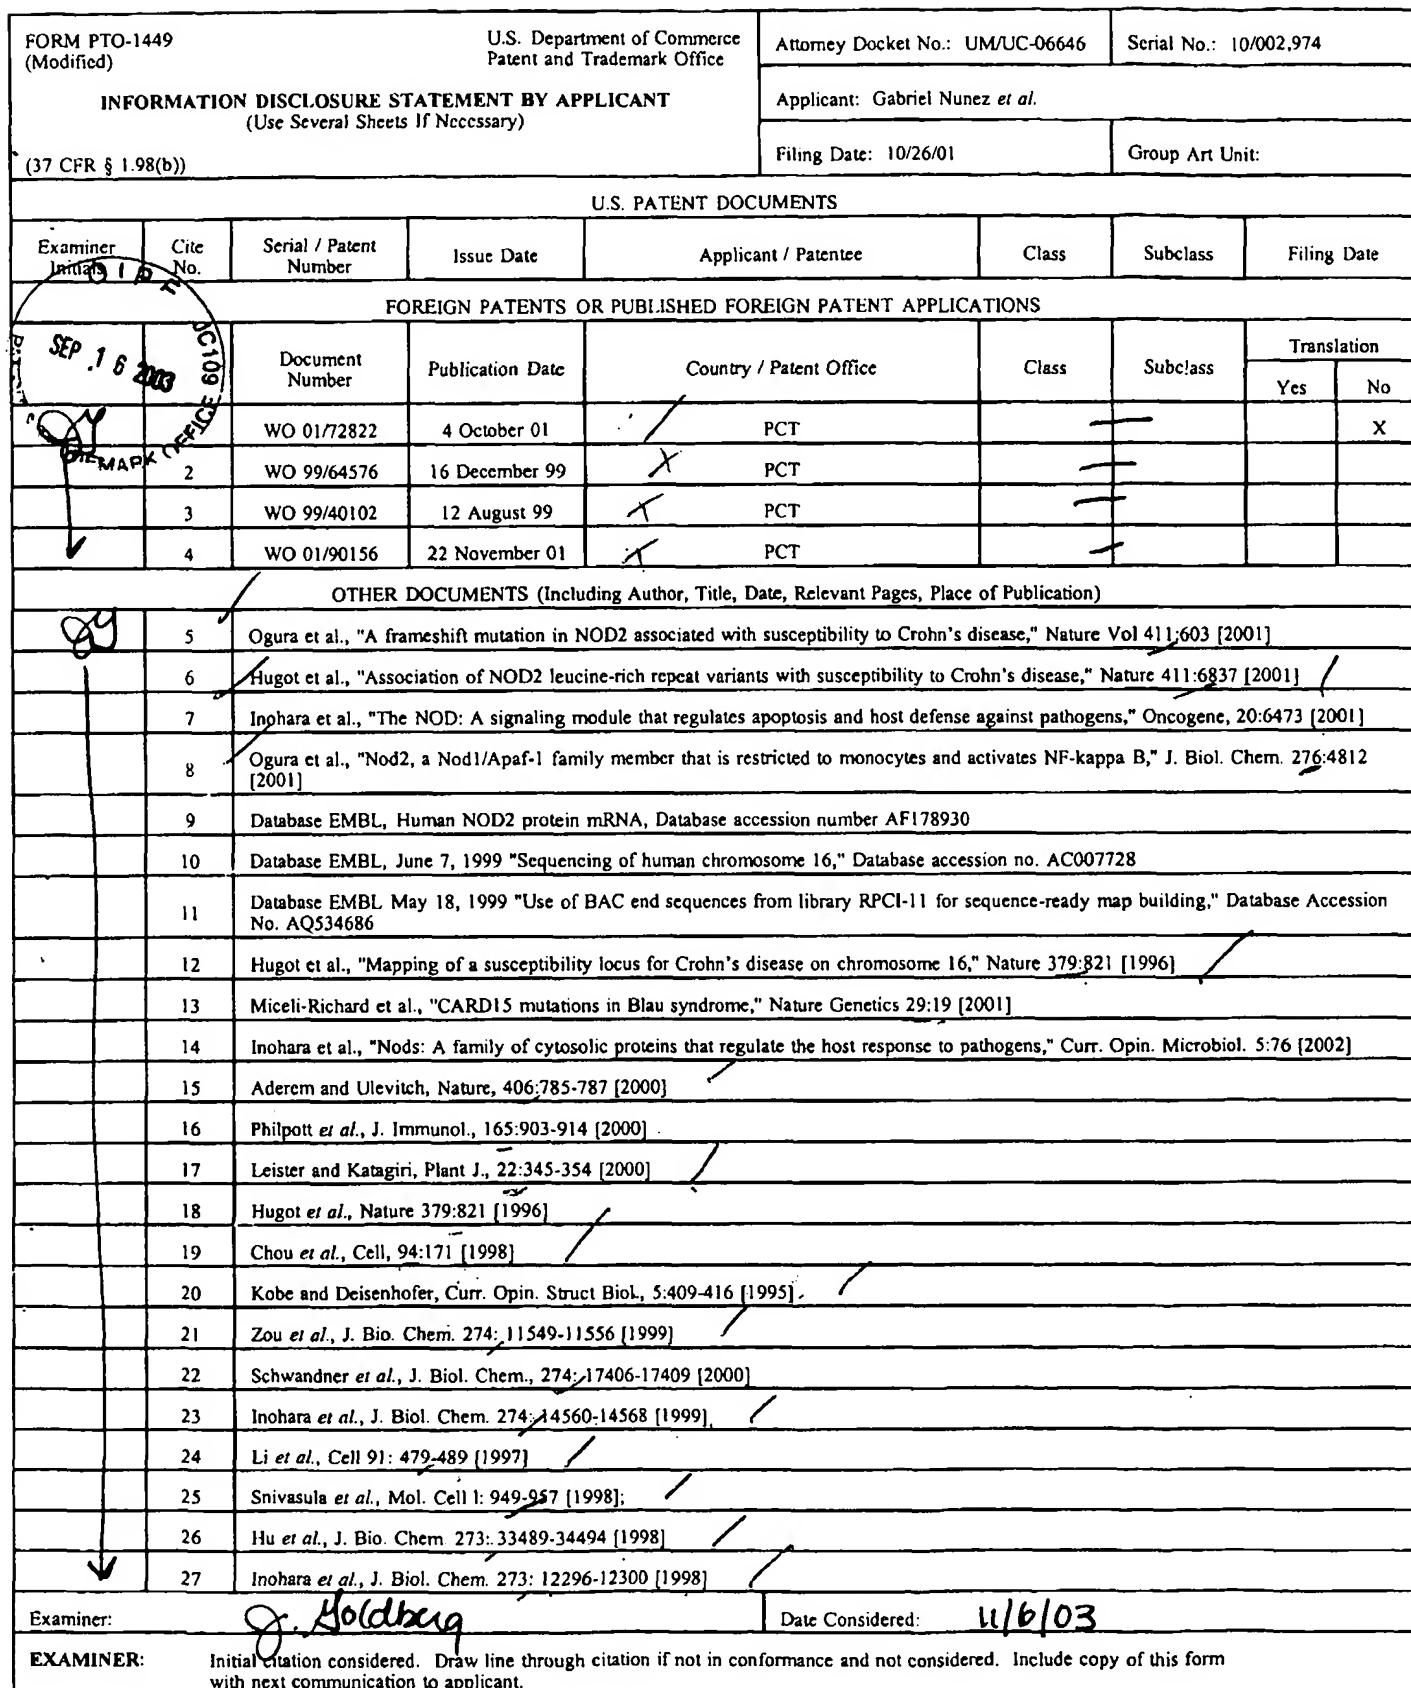 FORM PTO-1449
(Modified)
U.S. Department of Commerce
Patent and Trademark Office
INFORMATION DISCLOSURE STATEMENT BY APPLICANT
(Use Several Sheets If Necessary)
(37 CFR § 1.98(b))
Attorney Docket No.: UM/UC-06646
Serial No.: 10/002,974
Applicant: Gabriel Nunez et al.
Filing Date: 10/26/01
Group Art Unit:
U.S. PATENT DOCUMENTS
Examiner Initials Cite No. Serial / Patent Number Issue Date Applicant / Patentee Class Subclass Filing Date
FOREIGN PATENTS OR PUBLISHED FOREIGN PATENT APPLICATIONS
Document Number Publication Date Country / Patent Office Class Subclass Translation
Yes No
OIPE JC109
SEP 16 2003
WO 01/72822 4 October 01 PCT X
2 WO 99/64576 16 December 99 PCT
3 WO 99/40102 12 August 99 PCT
4 WO 01/90156 22 November 01 PCT
OTHER DOCUMENTS (Including Author, Title, Date, Relevant Pages, Place of Publication)
5 Ogura et al., "A frameshift mutation in NOD2 associated with susceptibility to Crohn's disease," Nature Vol 411:603 [2001]
6 Hugot et al., "Association of NOD2 leucine-rich repeat variants with susceptibility to Crohn's disease," Nature 411:6837 [2001]
7 Inohara et al., "The NOD: A signaling module that regulates apoptosis and host defense against pathogens," Oncogene, 20:6473 [2001]
8 Ogura et al., "Nod2, a Nod1/Apaf-1 family member that is restricted to monocytes and activates NF-kappa B," J. Biol. Chem. 276:4812
[2001]
9 Database EMBL, Human NOD2 protein mRNA, Database accession number AF178930
10 Database EMBL, June 7, 1999 "Sequencing of human chromosome 16," Database accession no. AC007728
11 Database EMBL May 18, 1999 "Use of BAC end sequences from library RPCI-11 for sequence-ready map building," Database Accession
No. AQ534686
12 Hugot et al., "Mapping of a susceptibility locus for Crohn's disease on chromosome 16," Nature 379:821 [1996]
13 Miceli-Richard et al., "CARD15 mutations in Blau syndrome," Nature Genetics 29:19 [2001]
14 Inohara et al., "Nods: A family of cytosolic proteins that regulate the host response to pathogens," Curr. Opin. Microbiol. 5:76 [2002]
15 Aderem and Ulevitch, Nature, 406:785-787 [2000]
16 Philpott et al., J. Immunol., 165:903-914 [2000]
17 Leister and Katagiri, Plant J., 22:345-354 [2000]
18 Hugot et al., Nature 379:821 [1996]
19 Chou et al., Cell, 94:171 [1998]
20 Kobe and Deisenhofer, Curr. Opin. Struct Biol., 5:409-416 [1995].
21 Zou et al., J. Bio. Chem. 274: 11549-11556 [1999]
22 Schwandner et al., J. Biol. Chem., 274: 17406-17409 [2000]
23 Inohara et al., J. Biol. Chem. 274: 14560-14568 [1999],
24 Li et al., Cell 91: 479-489 [1997]
25 Snivasula et al., Mol. Cell 1: 949-957 [1998];
26 Hu et al., J. Bio. Chem. 273: 33489-34494 [1998]
27 Inohara et al., J. Biol. Chem. 273: 12296-12300 [1998]
Examiner: J. Goldberg Date Considered: 11/6/03
EXAMINER: Initial citation considered. Draw line through citation if not in conformance and not considered. Include copy of this form
with next communication to applicant.